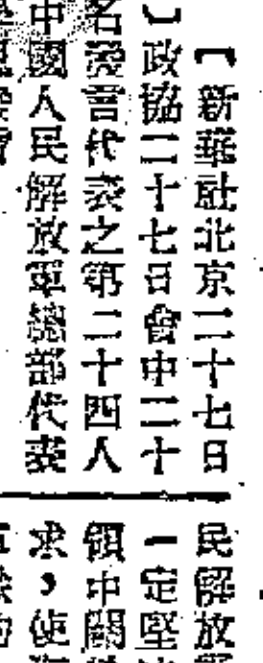 【新華社北京二十七日
】政協二十七日會中二十
名發言代表之第二十四人
中國人民解放軍總部代表
民解放
一定堅
領中關
求,使